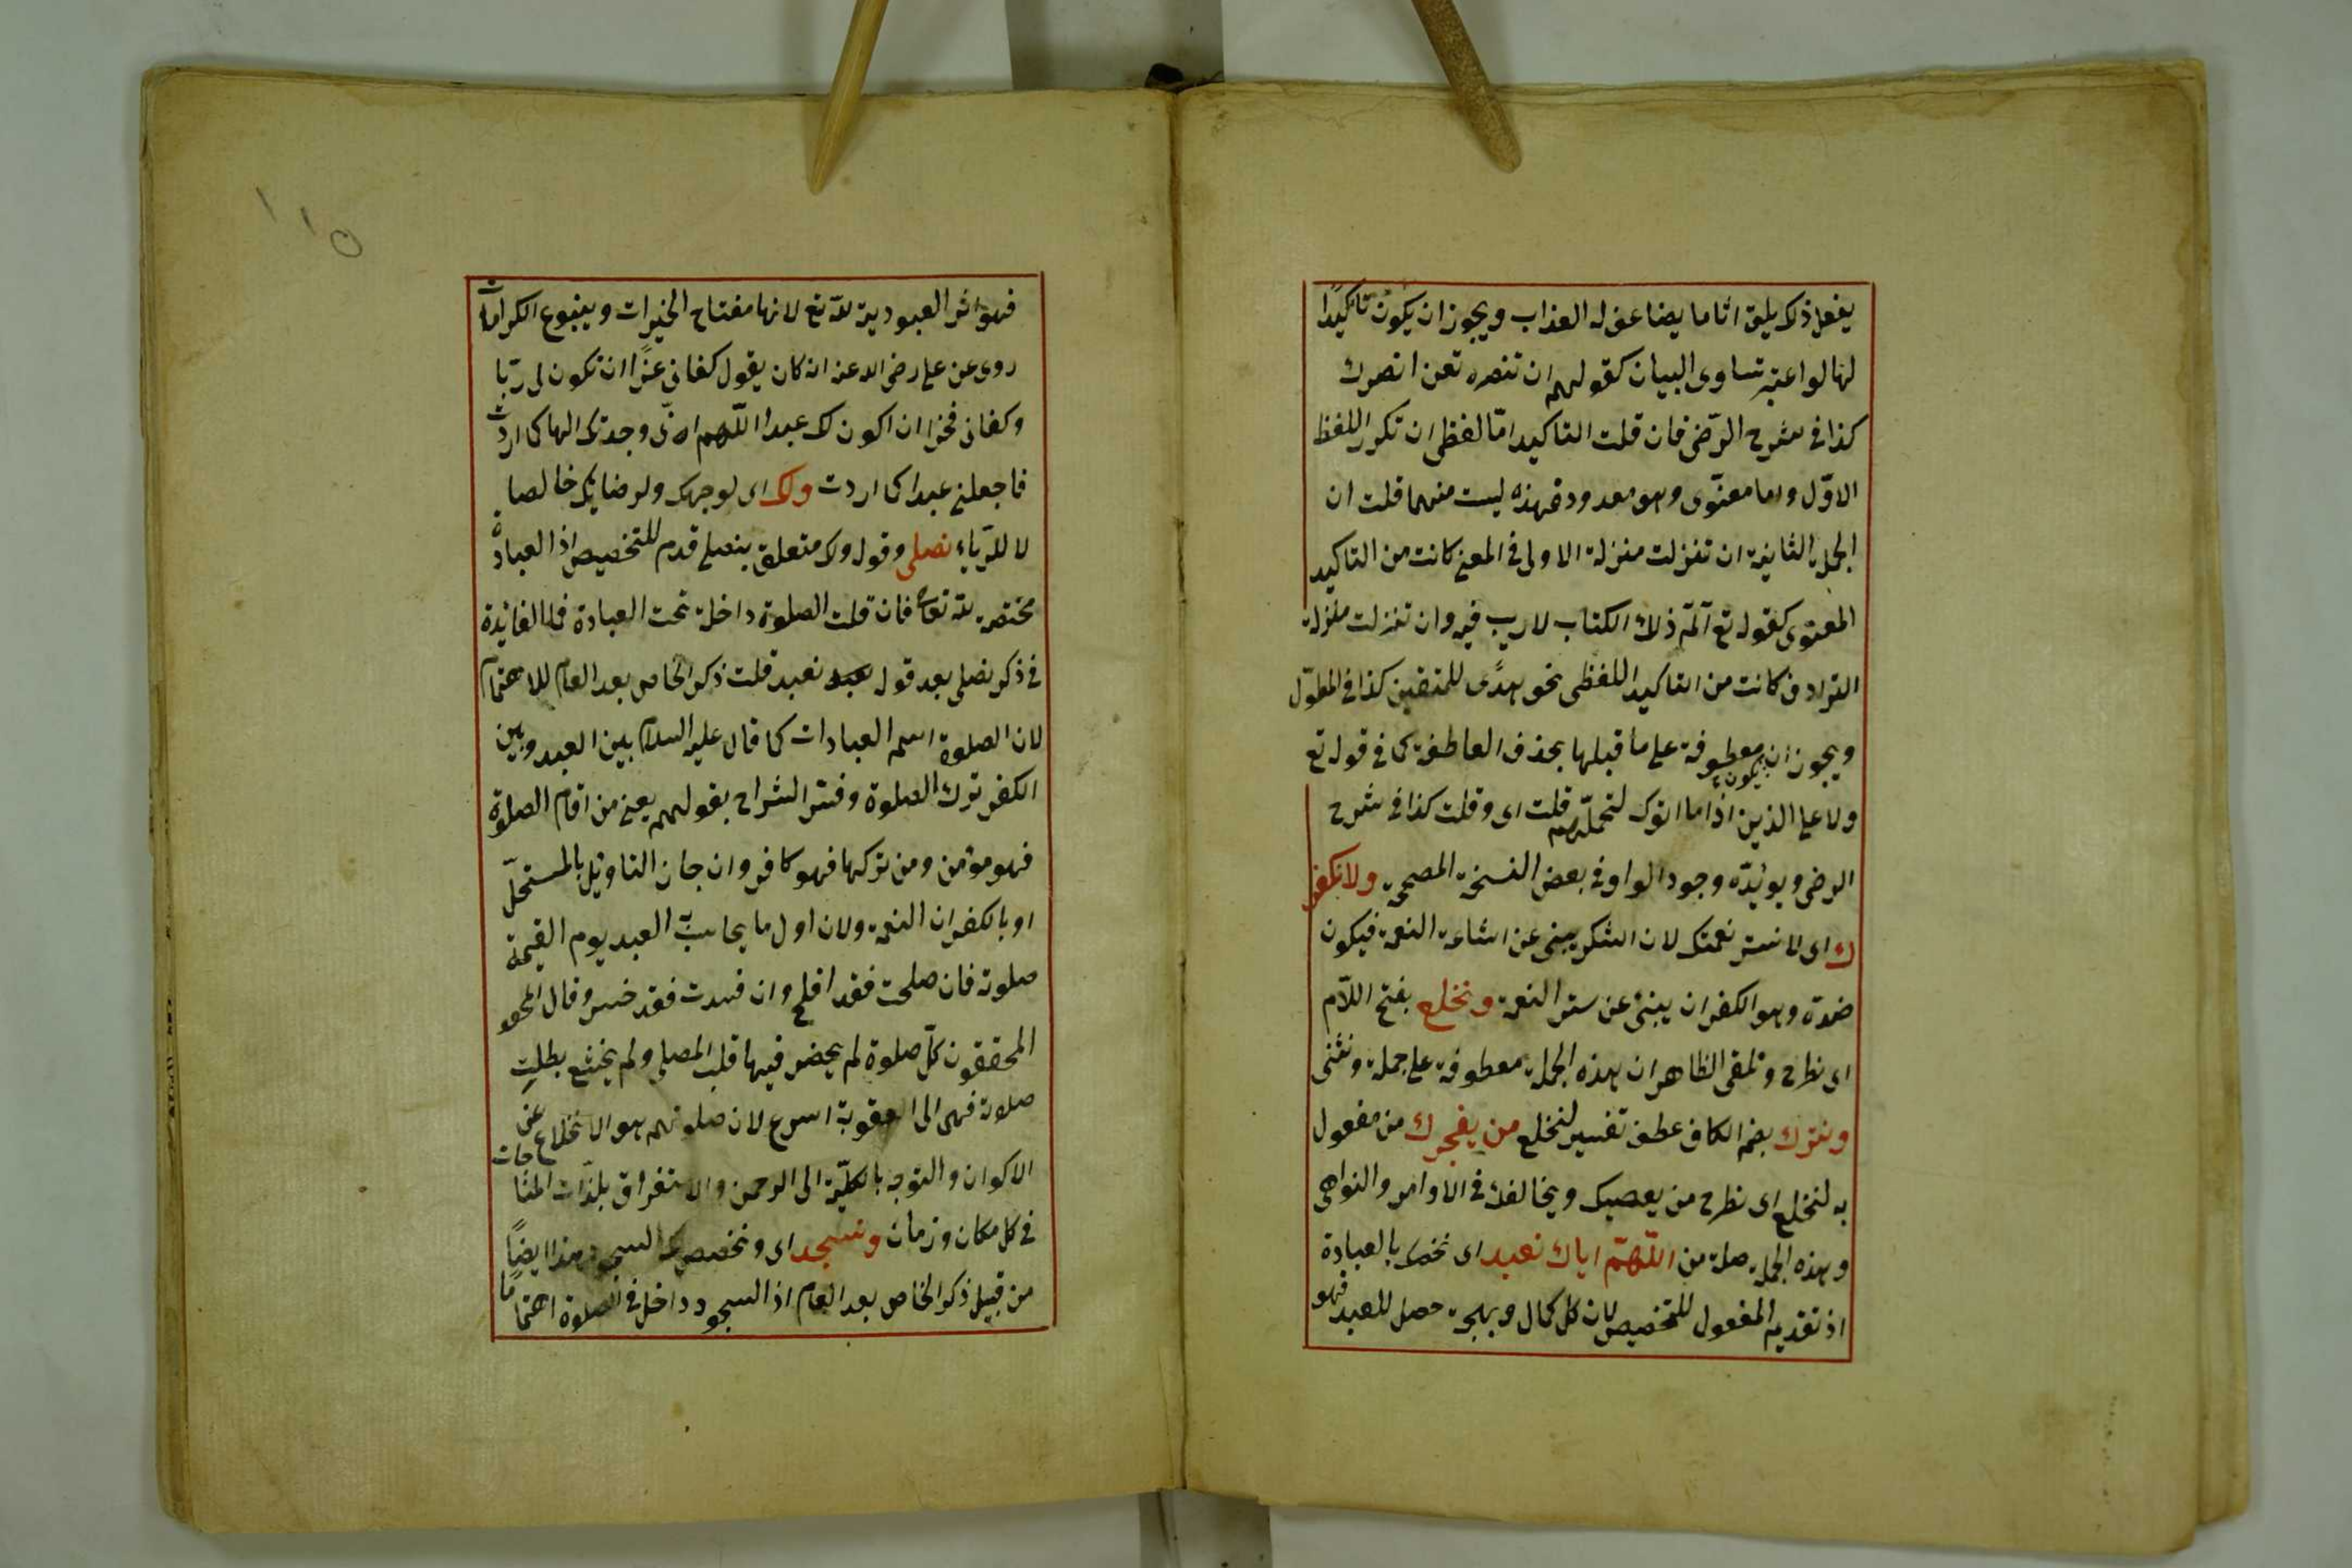 يفعل ذلك يلق اثاما يضاعف له العذاب ويجوز ان يكون تاكيدًا
لها لو اعتبر تساوى البيان كقولهم ان تنصره تعن انصرك
كذا فى شرح الرّضى فان قلت التاكيد امّا لفظى ان تكرر اللفظ
الاوّل واما معنوّى وهو معدود فهذه ليست منهما قلت ان
الجملة الثانية ان تنزلت منزلة الاولى فى المعنى كانت من التاكيد
المعنوى كقوله تع آلمّ ذلك الكتاب لا ريب فيه وان تنزلت منزلة
الترادف كانت من التاكيد اللفظى نحو هدًى للمتقين كذا فى المطوّل
ويجوز ان يكون معطوفة على ما قبلها بحذف العاطفة كما فى قوله تع
ولا على الذين اذا ما اتوك لتحملّهم قلت اى وقلت كذا فى شرح
الرضى ويوئدّه وجود الواو فى بعض النسخة المصححة ولا نكفر
ك اى لا نستر نعمتك لان الشكر يبنى عن اشاعة النعمة فيكون
ضدة وهو الكفران يبنئ عن ستر النعمة ونخلع بفتح اللّام
اى نطرح ونلقى الظاهر ان هذه الجملة معطوفة على جملة ونثنى
ونترك بضم الكاف عطف تفسير لنخلع من يفجرك من مفعول
به لنخلع اى نطرح من يعصيك ويخالفك فى الاوامر والنواهى
وهذه الجملة صلة من اللّهمّ اياك نعبد اى نخصك بالعبادة
اذ تقديم المفعول للتخصيص لان كل كمال وبهجة حصل للعبد فهو
١١٥
فهو اثر العبودية للّه تع لانها مفتاح الخيرات وينبوع الكرامات
روى عن على رضى الله عنه انه كان يقول كفانى عزًا ان تكون لى ربّا
وكفانى فخرا ان اكون لك عبدا اللّهم انّى وجدتك الها كما اردت
فاجعلنى عبدا كما اردت ولك اى لوجهك ولرضايك خالصا
لا للرّياء نصلى وقوله ولك متعلق بنصلى قدم للتخصيص اذ العبادة
مختصة للّه تعالى فان قلت الصلوة داخلة تحت العبادة فما الفائدة
فى ذكر نصلى بعد قوله نعبد قلت ذكر الخاص بعد العام للاهتمام
لان الصلوة اسم العبادات كما قال عليه السلام بين العبد وبين
الكفر ترك الصلوة وفسّر الشراح بقولهم يعنى من اقام الصلوة
فهو مؤمن ومن تركها فهو كافر وان جاز التاويل بالمستحلّ
او بالكفران النعمة ولان اول ما يحاسب العبد يوم القيمة
صلوته فان صلحت فقد افلح وان فسدت فقد خسر وقال المحقق
المحققون كلّ صلوة لم يحضر فيها قلب المصلى ولم يخشع بطلت
صلاته فهى الى العقوبة اسرع لان صلوتهم هو الانخلاع عن
الاكوان والتوجه بالكليّة الى الرحمن والاستغراق بلذّات المناجات
فى كل مكان وزمان ونسجد اى ونخصصك السجود هذا ايضًا
من قبيل ذكر الخاص بعد العام اذ السجود داخل فى الصلوة اهتماما